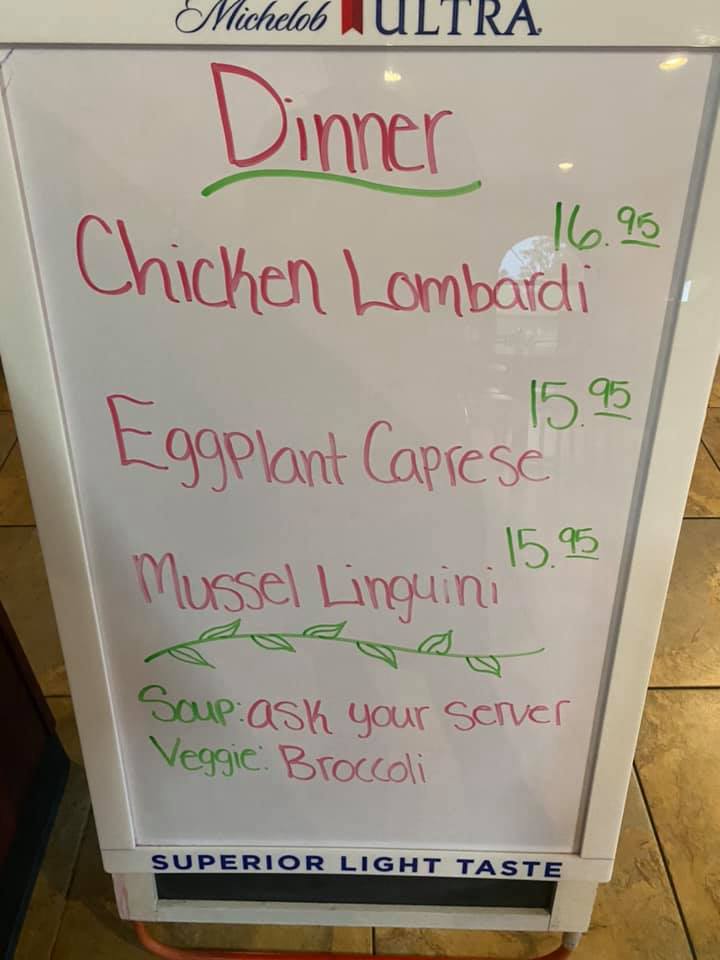 Michelob ULTRA
Dinner
16.95
Chicken Lombardi
15.95
Eggplant Caprese
15.95
Mussel Linguini
Soup: ask your server
Veggie: Broccoli
SUPERIOR LIGHT TASTE